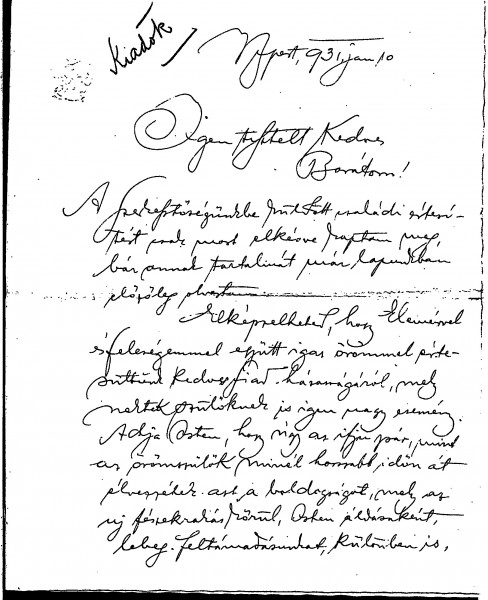 Kiadók
Bpest, 931 jan 10
Igen tisztelt Kedves
Barátom!
A szerkesztőségünkbe küldött családi értesí-
tést csak most elkésve kaptam meg,
bár annak tartalmát már lapunkban
előzőleg olvastam
Elképzelheted, hogy Elemérrel
és feleségemmel együtt igaz örömmel érte-
sültünk kedves fiad házasságáról, mely
nektek szülőknek is igen nagy esemény.
Adja Isten, hogy úgy az ifju pár, mind
az örömszülők minél hosszabb időn át
élvezzétek azt a boldogságot, mely az
uj fészekrakás körül, Isten áldásaként,
lebeg. Feltámadásunkat, különben is,